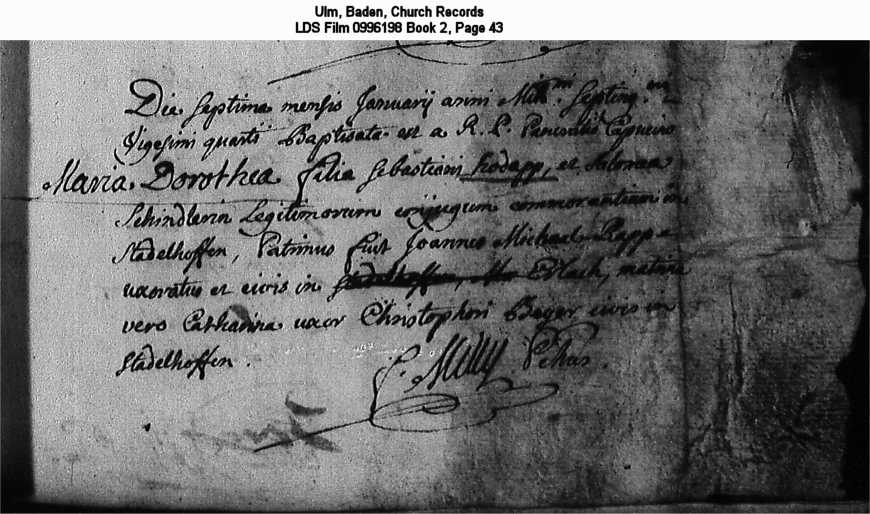 Ulm, Baden, Church Records
LDS Film 0996198 Book 2, Page 43
Die septima mensis Januarij anni Mill.mi septing.mi
Vigesimi quarti Baptisata est a R. P.
Maria Dorothea filia Sebastiani Hodapp, et Salomea
Schindlerin Legitimorum conjugum commorantium in
Stadelhoffen, Patrinus fuit Joannes Michael Rapp
uxoratus et civis in Erlach, matrina
vero Catharina uxor Christophori Beyer civis in
Stadelhoffen.